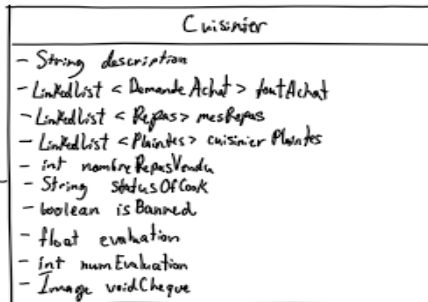 Cuisinier
- String description
- LinkedList <DemandeAchat> toutAchat
- LinkedList <Repas> mesRepas
- LinkedList <Plaintes> cuisinierPlaintes
- int nombreRepasVendu
- String statusOfCook
- boolean isBanned
- float evaluation
- int numEvaluation
- Image voidCheque